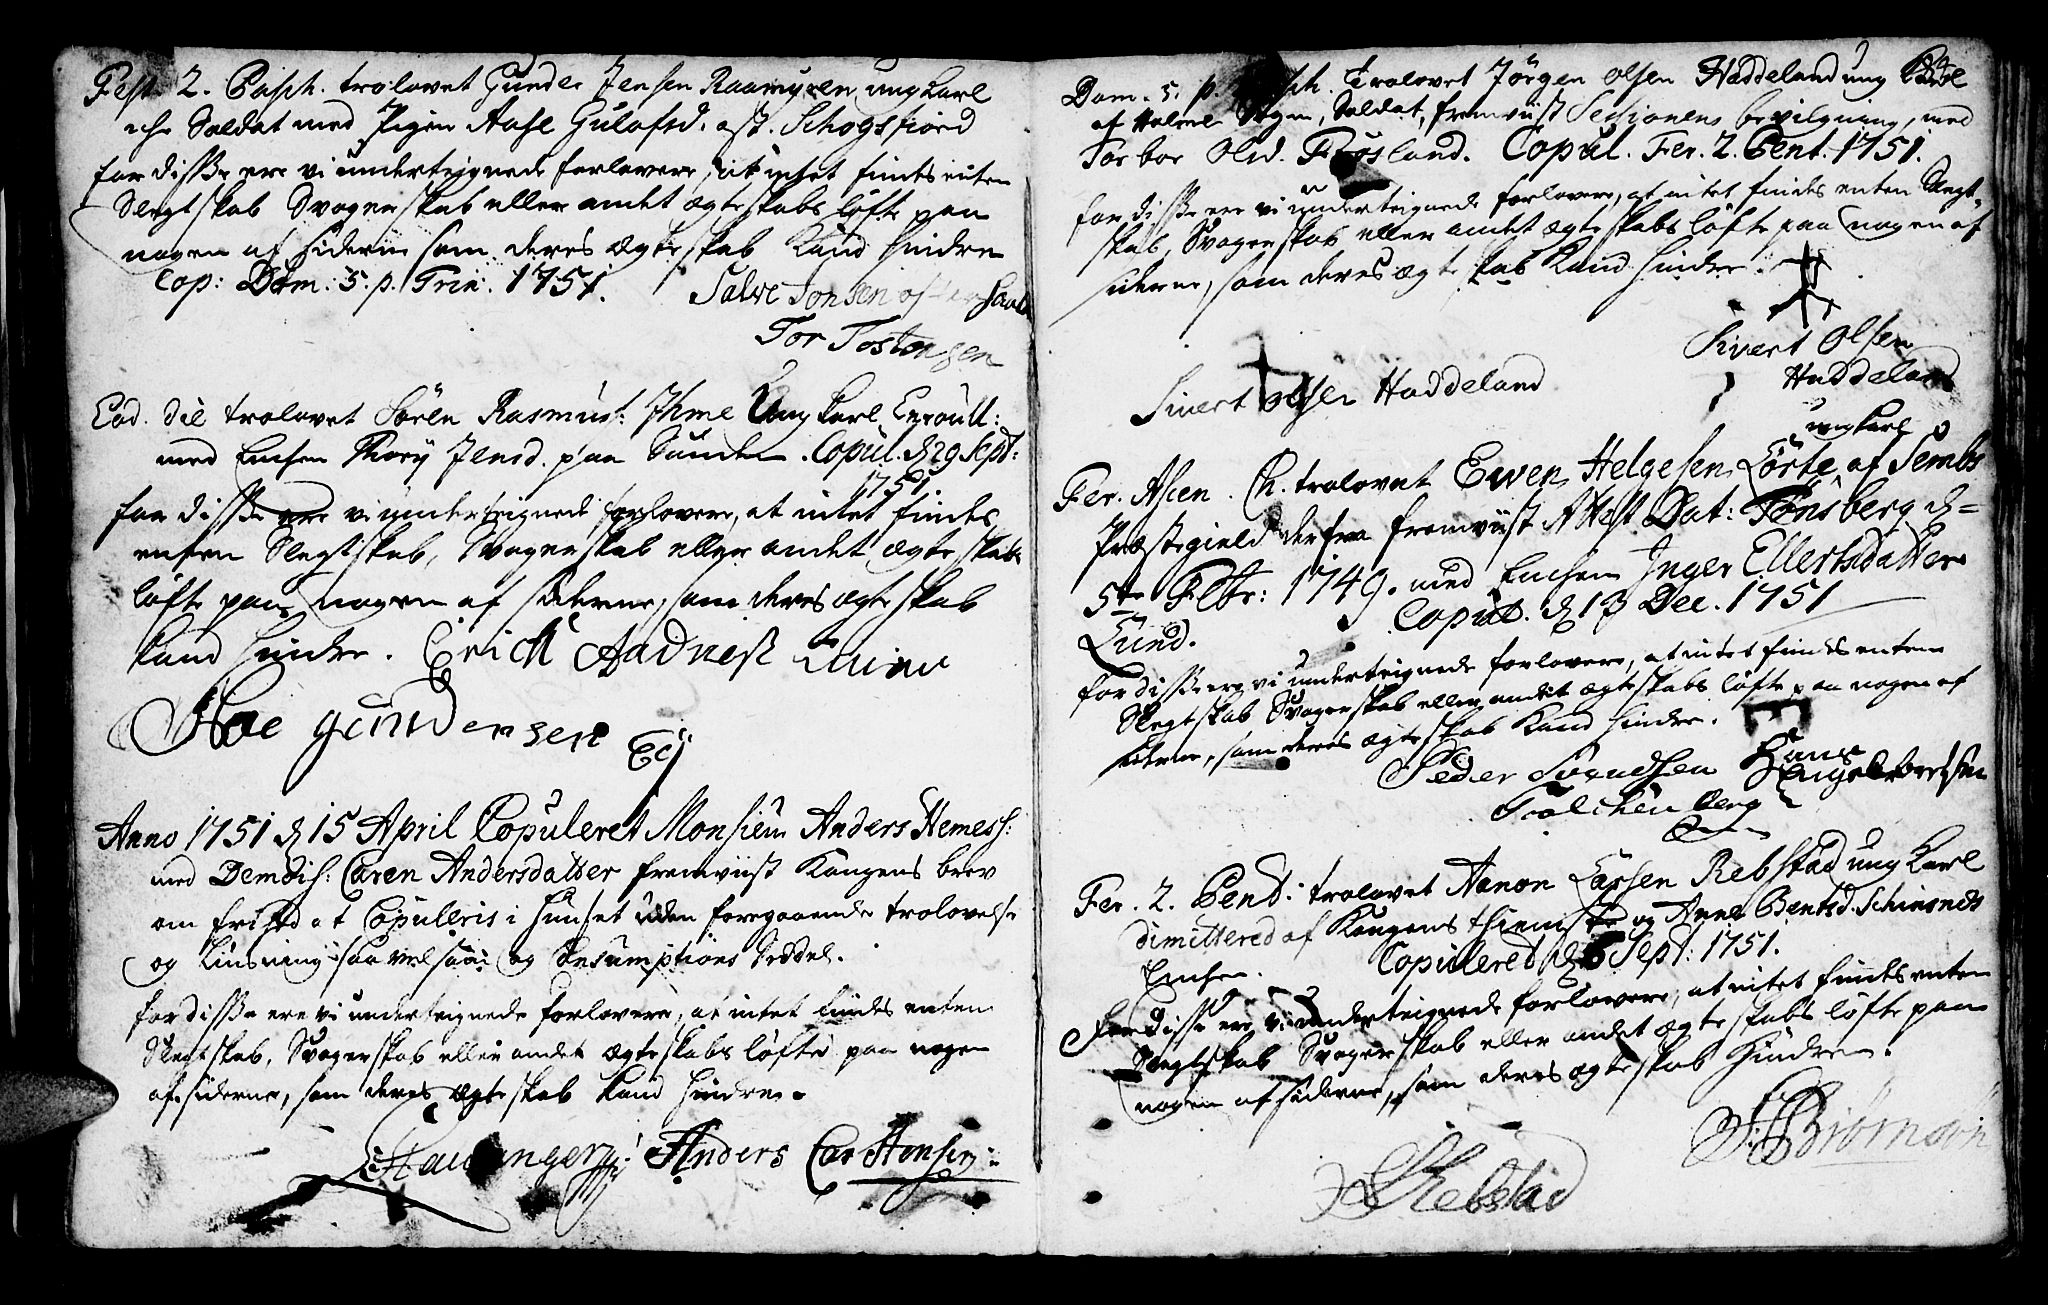 Fest. 2. Pasch. trolovet Gunder Jensen Raamyren ungkarl
iche Soldat med Pigen Aase Gulofsd. ast. Schogsfiord
for disse ere vi underteignede forlovere, at intet findes enten
Slegtskab Svogerskab eller andet ægteskabs løfte paa
nogen af siderne som deres Ægteskab kand hindre
Cop: Dom: 5. p. Trin: 1751.
Salve Jonsen
Tor Tostensen
Eod. die trolovet Sören Rasmus: Ihme Ungkarl Enroull:
med Enchen Mary Jensd. paa Sunden. Copul. d 29 Sept:
1751
for disse ere vi underteignede forlovere, at intet findes
enten Slegtskab, Svogerskab eller andet Ægteskabs
løfte paa nogen af siderne, som deres ægteskab
kand hindre. Erich Aadnesß
gundersen
Anno 1751 d 15 April Copuleret Monsieur Anders Nemess:
med Demois: Caren Andersdatter fremviist Kongens brev
om frihed at Copuleris i Huuset uden foregaaende trolovelse
og Liusning saavelsom og Consumptions Seddel.
for disse ere vi underteignede forlovere, at intet findes enten
Slegtskab, Svogerskab eller andet ægteskabs løfte paa nogen
af siderne, som deres Ægteskab kand hindre.
Anders Carstensen
Dom. 5. p. Pasch. Trolovet Jørgen Olsen Haddeland ung Karl
af Holme Sogn, Soldat, fremviist Sessionens bevilgning, med
Torbor Olsd. Frøsland. Copul. Fer. 2. Pent. 1751.
for disse ere vi underteignede forlovere, at intet findes enten Slegt-
skab, Svogerskab eller andet ægteskabs løfte paa nogen af
siderne, som deres ægteskab kand hindre.
Sivert Olsen
Haddeland
Sivert Olsen Haddeland
ungkarl
Fer. Ascen. Ch. trolovet Ewen Helgesen Lörte af Sembs
Præstegield derfra fremviist Attest Dat: Tönsberg d=
5te Febr: 1749. med Enchen Inger Ellertsdatter
Copul. d 13 Dec. 1751
Lund.
for disse ere vi underteignede forlovere, at intet findes enten
Slegtskab Svogerskab eller andet ægteskabs løfte paa nogen af
siderne, som deres ægteskab kand hindre.
Peder Svendsen Hans
Engelbrethsen
Fer. 2. Pent: trolovet Aanon Larsen Rebstad ung Karl
dimittered af Kongens thieniste og Anne Bentsd. Schiusnes
Enchen. Copulered d 6 Sept: 1751.
for disse ere vi underteignede forlovere, at intet findes enten
Slegtskab Svogerskab eller andet ægteskabs løfte paa
nogen af siderne, som deres ægteskab hindre.
Biörnson
Rebstad